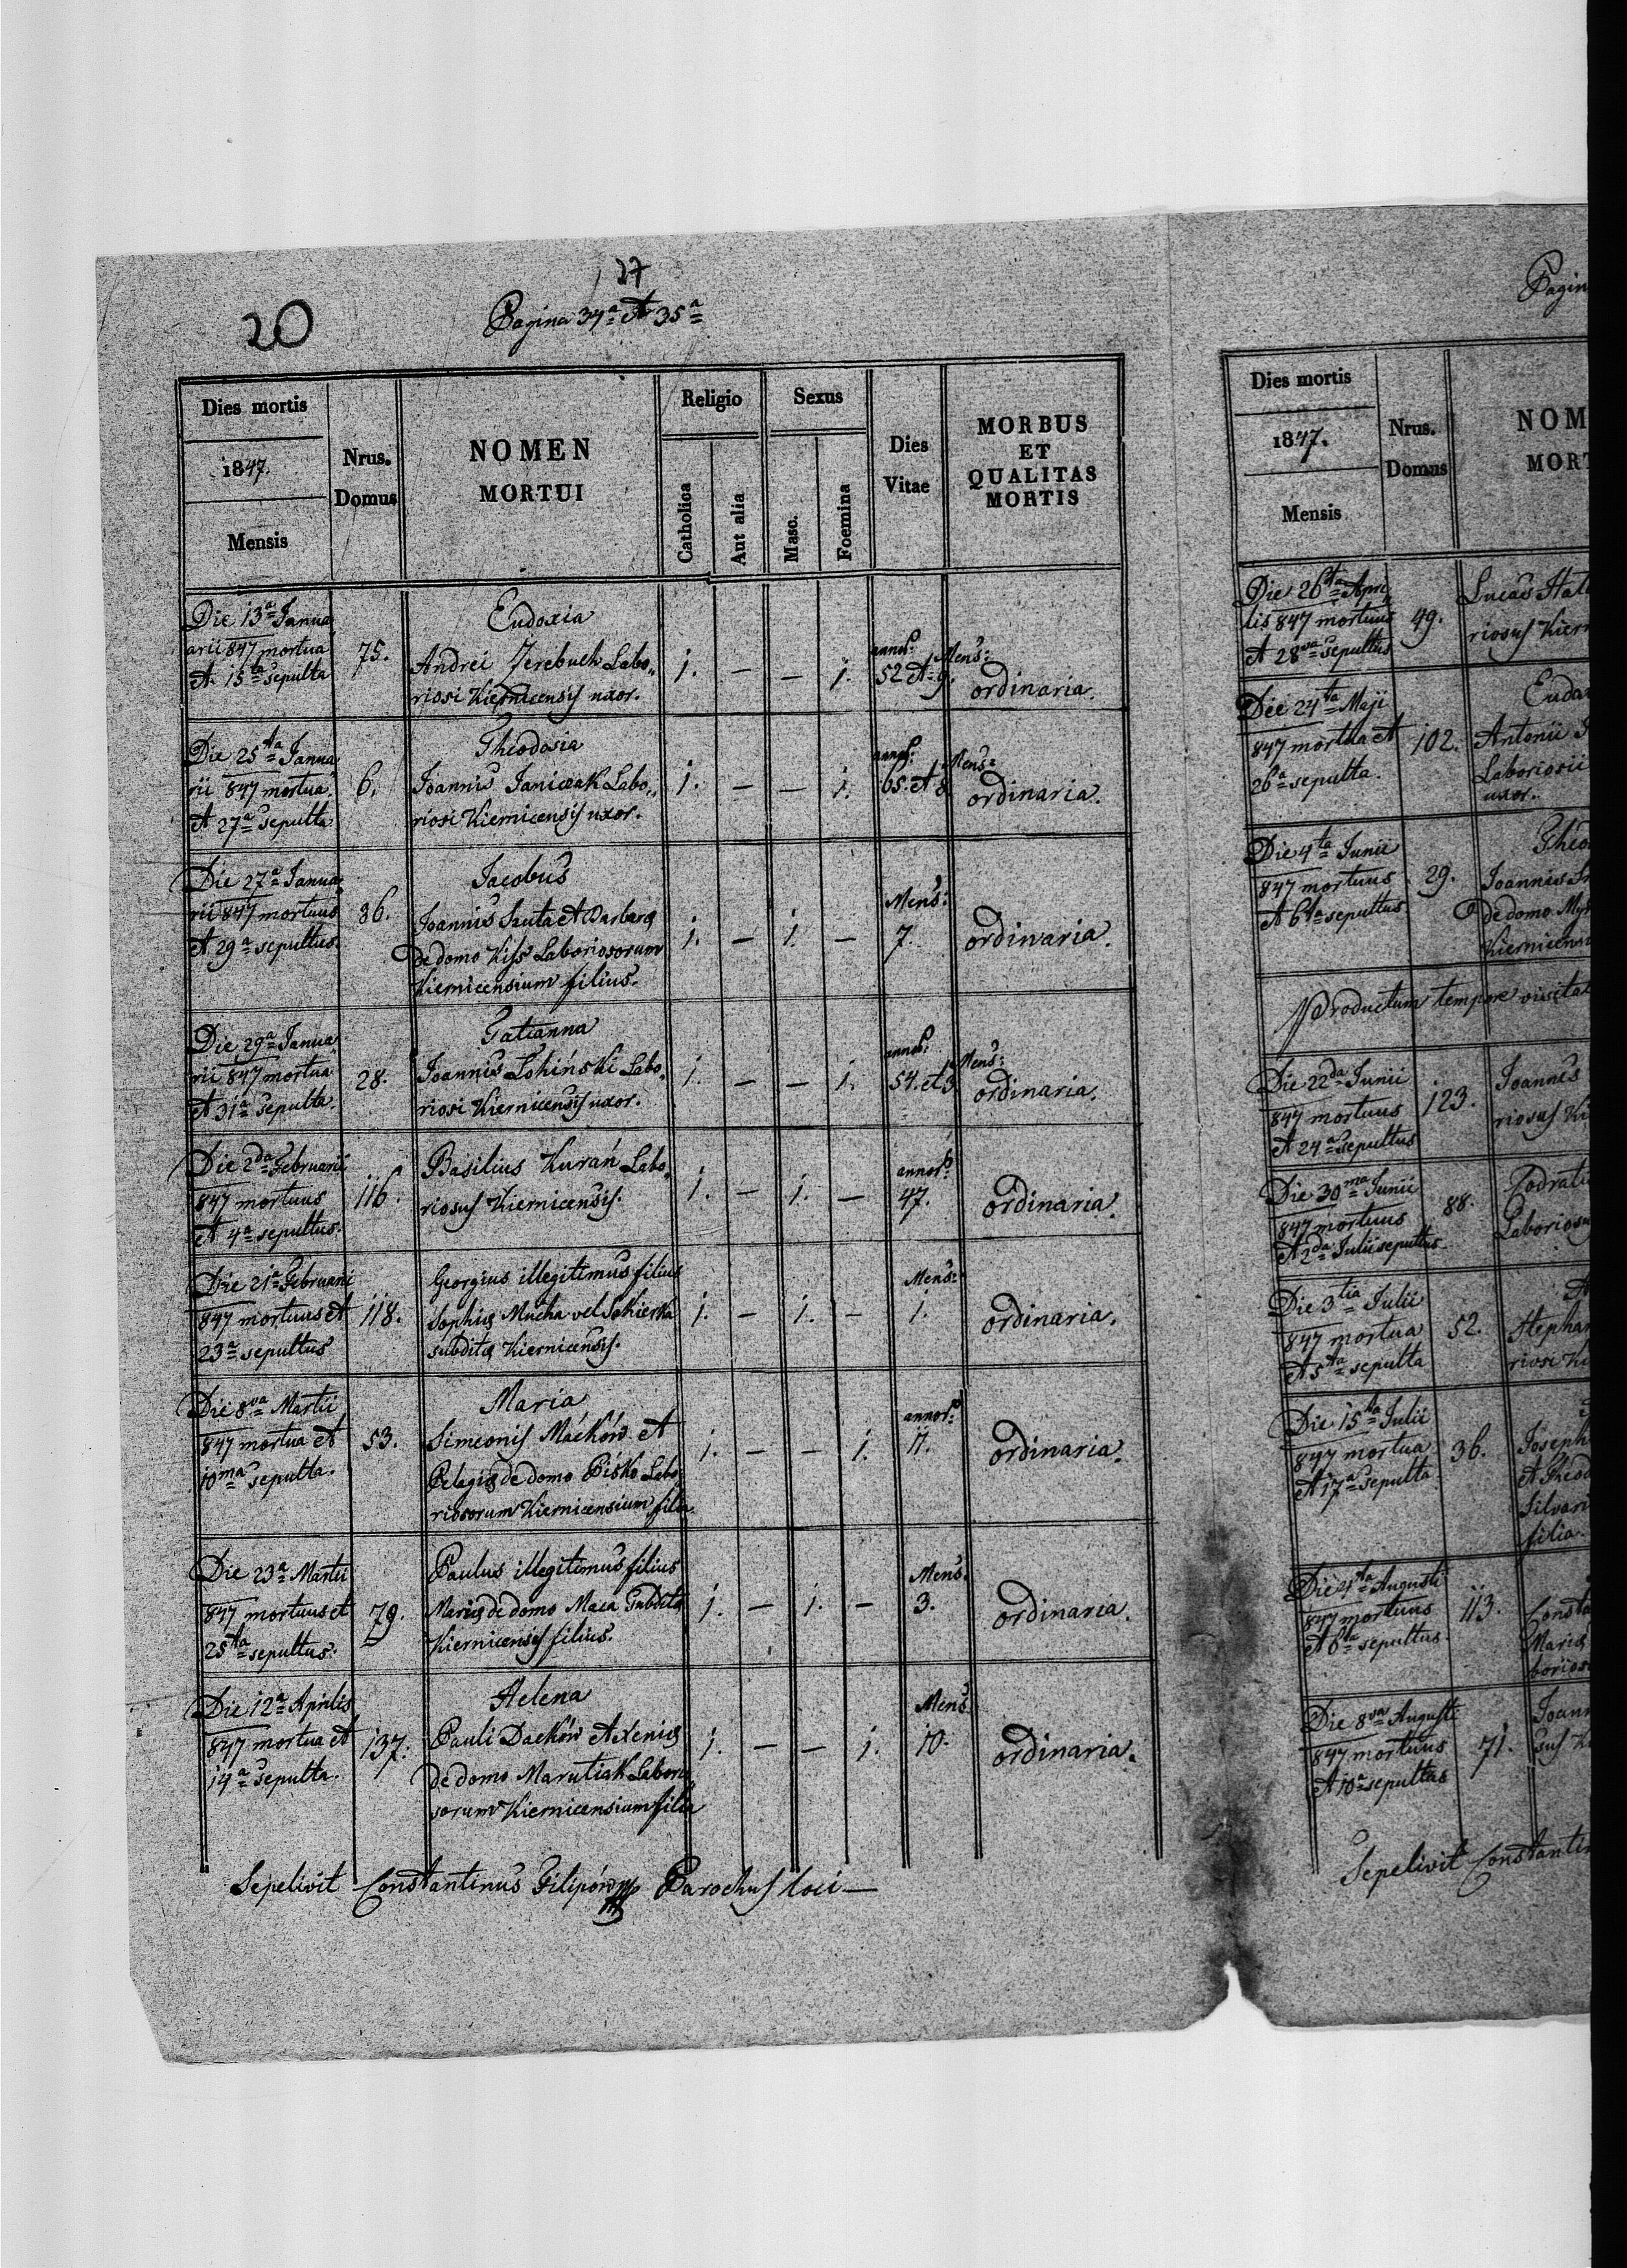 27
20
Pagina 34ª et 35ª
Dies mortis
1847.
Mensis
Nrus.
Domus
NOMEN
MORTUI
Religio
Catholica
Aut alia
Sexus
Masc.
Foemina
Dies
Vitae
MORBUS
ET
QUALITAS
MORTIS
Die 13ª Janua
arii 847 mortua
et 15ta sepulta
75.
Eudoxia
Andrei Jerebuch Labo„
riosi Kiernicensis uxor.
1. — — 1.
annor: Mens:
52 et 9.
ordinaria.
Die 25ta Janua
rii 847 mortua
et 27ª sepulta
6.
Theodosia
Joannis Janiczak Labo„
riosi Kiernicensis uxor.
1. — — 1.
annor: Mens:
65. et 8
ordinaria.
Die 27ª Janua„
rii 847 mortuus
et 29ª sepultus.
36.
Jacobus
Joannis Szuta et Barbarę
de domo Kiss Laboriosorum
Kiernicensium filius.
1. — 1. —
Mens:
7.
ordinaria.
Die 29ª Janua„
rii 847 mortua
et 31ª sepulta.
28.
Tatianna
Joannis Łohiński Labo„
riosi Kiernicensis uxor.
1. — — 1.
annor: Mens:
54. et 3
ordinaria.
Die 2da Februarii
847 mortuus
et 4ª sepultus.
116.
Basilius Kurań Labo„
riosus Kiernicensis.
1. — 1. —
annor:
47.
ordinaria.
Die 21ª Februarii
847 mortuus et
23ª sepultus
118.
Georgius illegitimus filius
Sophię Mucha vel
subditę Kiernicensis.
1. — 1. —
Mens:
1.
ordinaria.
Die 8va Martii
847 mortua et
10ma sepulta.
53.
Maria
Simeonis Maćków et
Pelagię de domo Pisko Labo„
riosorum Kiernicensium filia
1. — — 1.
annor:
ordinaria.
Die 23ª Martii
847 mortuus et
25ta sepultus.
79.
Paulus illegitimus filius
Marię de domo Maca Subditę
Kiernicensis filius.
1. — 1. —
Mens.
3.
ordinaria.
Die 12ª Aprilis
847 mortua et
14ª sepulta.
137.
Helena
Pauli Daćków et Xenię
de domo Marutiak Laborio
sorum Kiernicensium filia
1. — — 1.
Mens.
10.
ordinaria.
Sepelivit Constantinus Filipów Parochus loci —
Pagin
Dies mortis
1847.
Mensis
Nrus.
Domus
NOM
MORT
Die 26ta Apri„
lis 847 mortuus
et 28va sepultus
49.
Lucas
riosus Kier
Die 24ta Maji
847 mortua et
26ª sepulta.
102.
Eudo
Antonii
Laboriosii
uxor.
Die 4ta Junii
847 mortuus
et 6ta sepultus
29.
Theo
Joannis
de domo
Kiernicen
Productum tempore visitat
Die 22da Junii
847 mortuus
et 24ª sepultus
123.
Joannes
riosus Ki
Die 30ma Junii
847 mortuus
et 2da Julii sepultus
88.
Laborios
Die 3tia Julii
847 mortua
et 5ta sepulta
52.
Stephan
riosi Ki
Die 15ta Julii
847 mortua
et 17ª sepulta
36.
Joseph
et Theod
Silvar
filia.
Die 4ta Augusti
847 mortuus
et 6ta sepultus.
113.
Consta
Marię
borios
Die 8va Augusti
847 mortuus
et 10ª sepultus
71.
Joann
sus K
Sepelivit Constantin